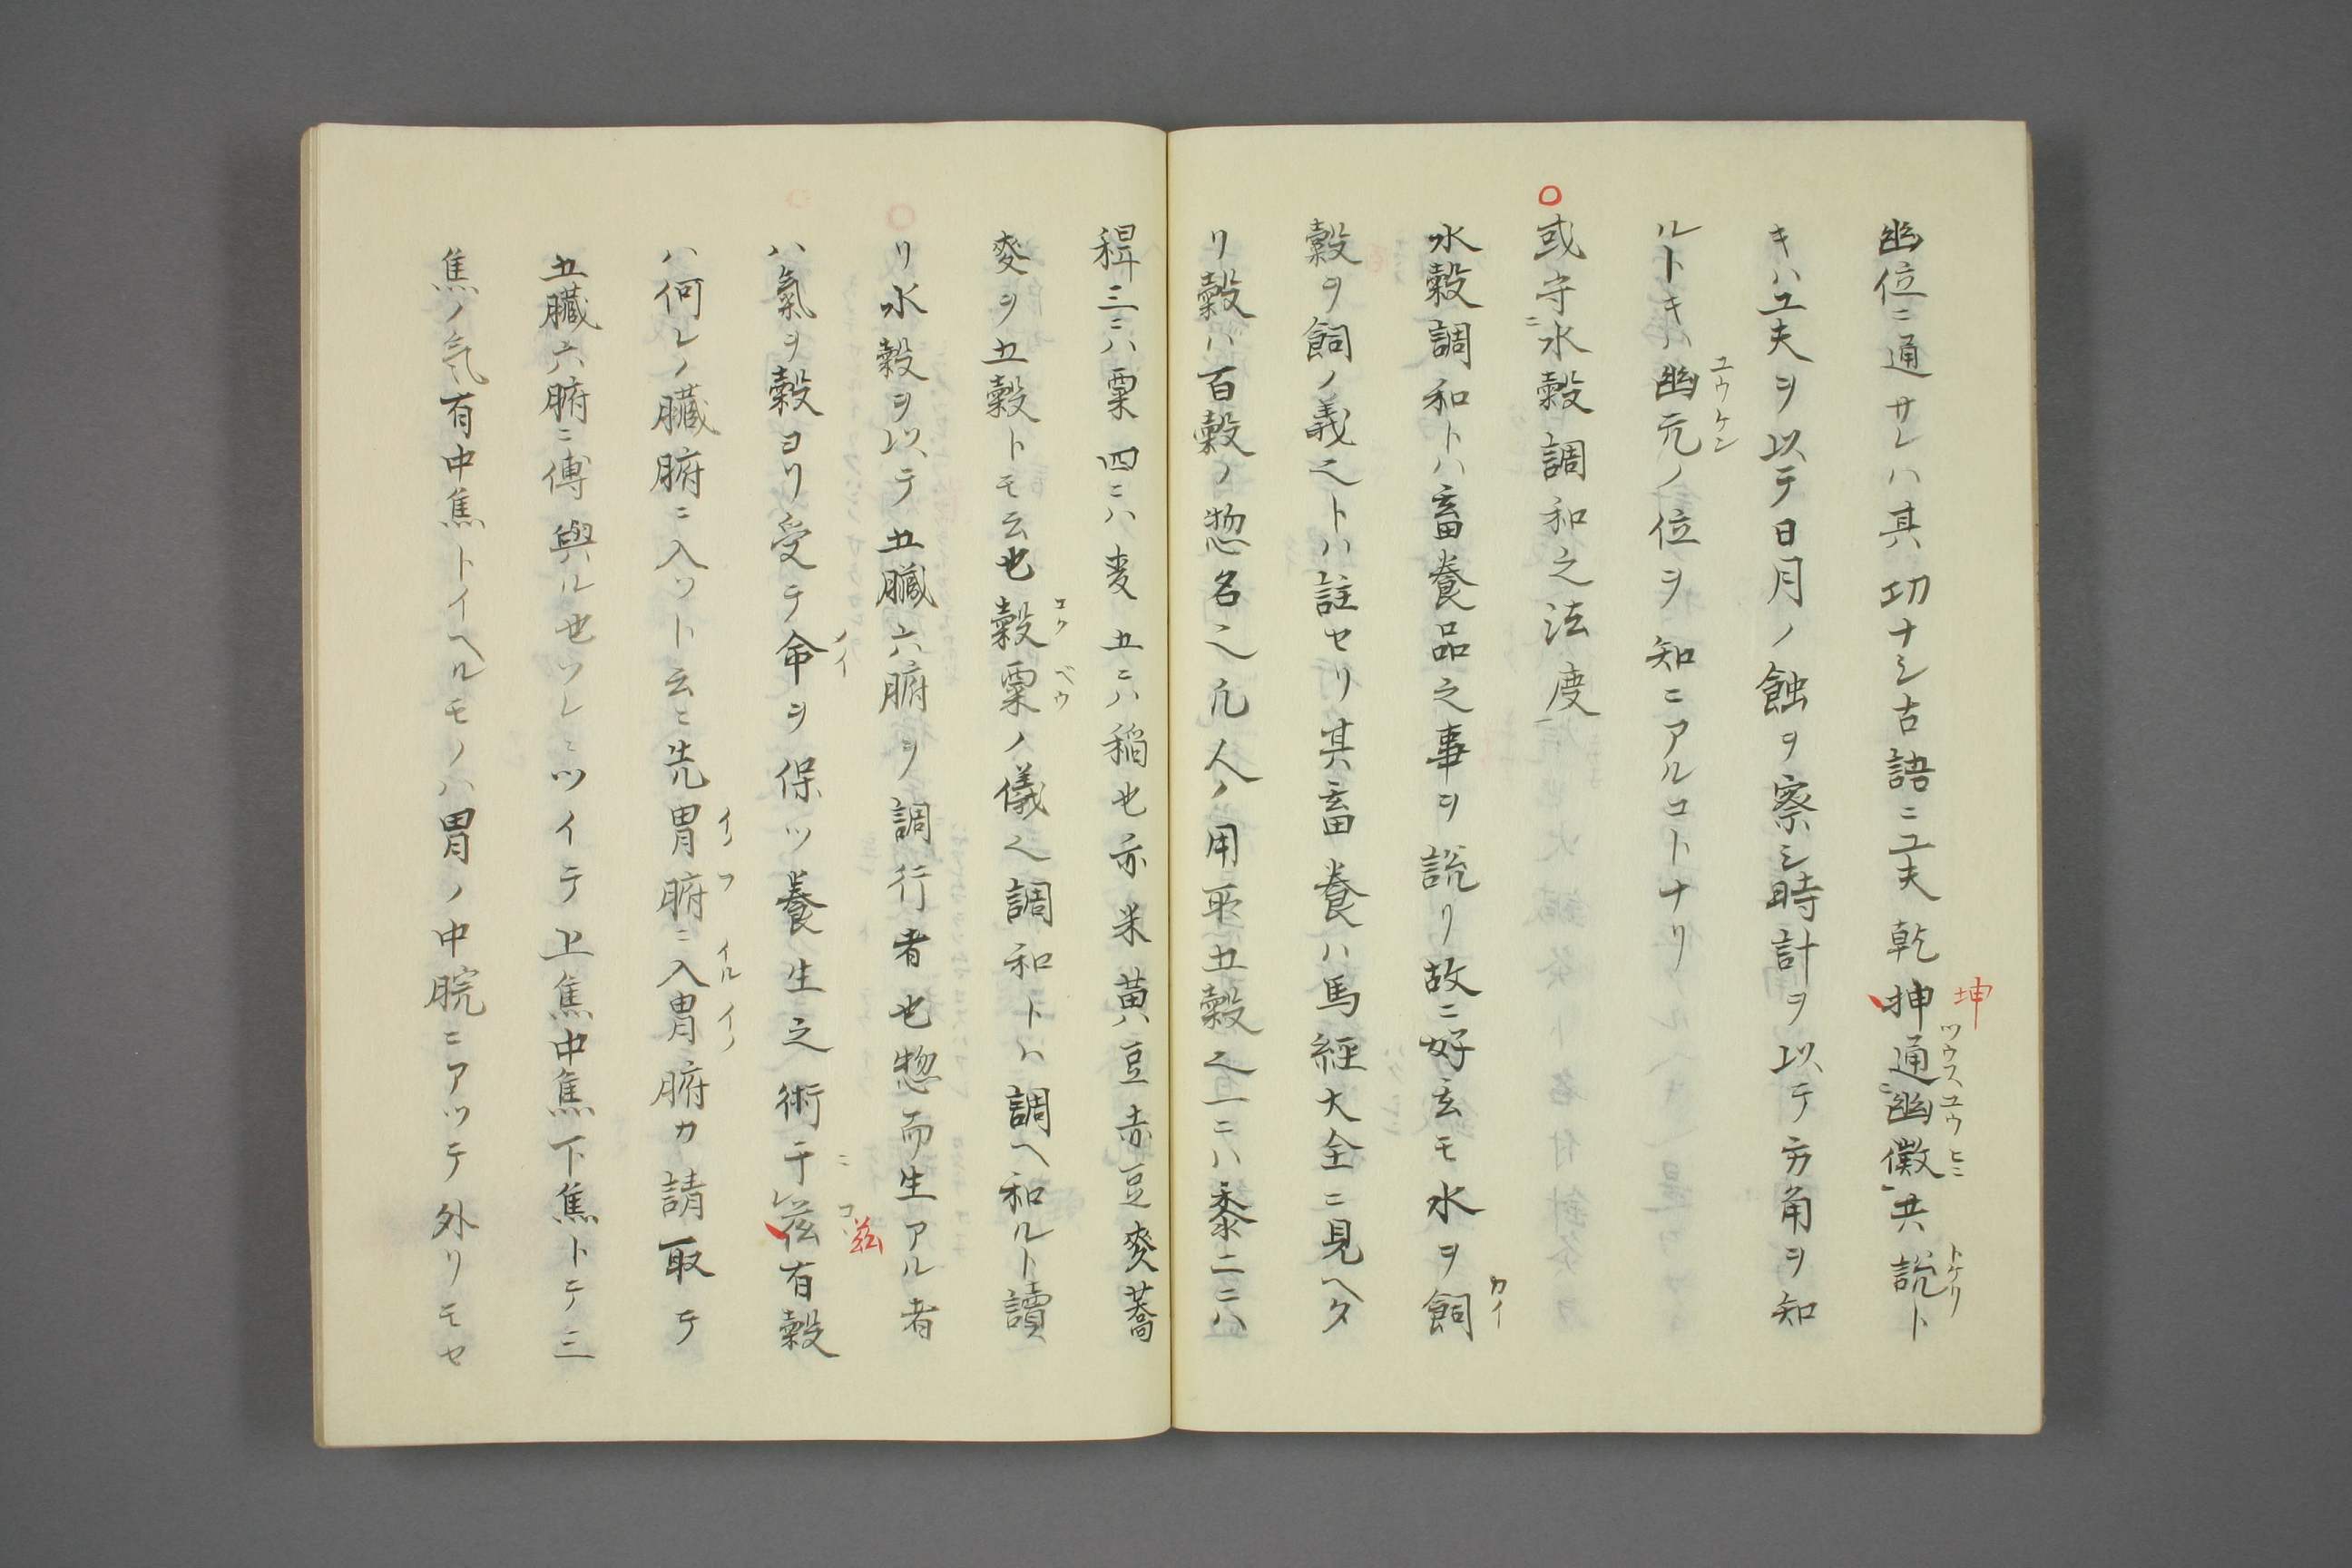 幽位ニ通サレハ其功ナシ古語ニ工夫乾抻通幽徴共説ト
坤
ツウス ユウヒニ
トケリ
キハ工夫ヲ以テ日月ノ蝕ヲ察シ時計ヲ以テ方角ヲ知
ルトキハ幽元ノ位ヲ知ニアルコトナリ
ユウケン
○或守ニ水穀調和之法度
水穀調和トハ畜養品之事ヲ説リ故ニ好玄モ水ヲ飼
カイ
穀ヲ飼ノ義之トハ註セリ其畜養ハ馬經大全ニ見ヘタ
リ穀ハ百穀ノ惣名之凡人ノ用取五穀之一ニハ黍二ニハ
稗三ニハ粟四ニハ麦五ニハ稲也亦米黄ハ豆赤豆麥蕎
麥ヲ五穀トモ云也穀粟ノ儀之調和トハ調ヘ和ルト讀
コク ベウ
○リ水穀ヲ以テ五臓六腑ヲ調行者也惣而生アル者
ハ氣ヲ穀ヨリ受テ命ヲ保ツ養生之術于茲有穀
ノイ
ニ コヽ 茲
ハ何レノ臓腑ニ入ツト云ニ先胃腑ニ入胃腑カ請取テ
イノフ イル イノ
五臓六腑ニ傳與ル也ソレニツイテ上焦中焦下焦トテ三
焦ノ気有中焦トイヘルモノハ胃ノ中脘ニアツテ外リモセ